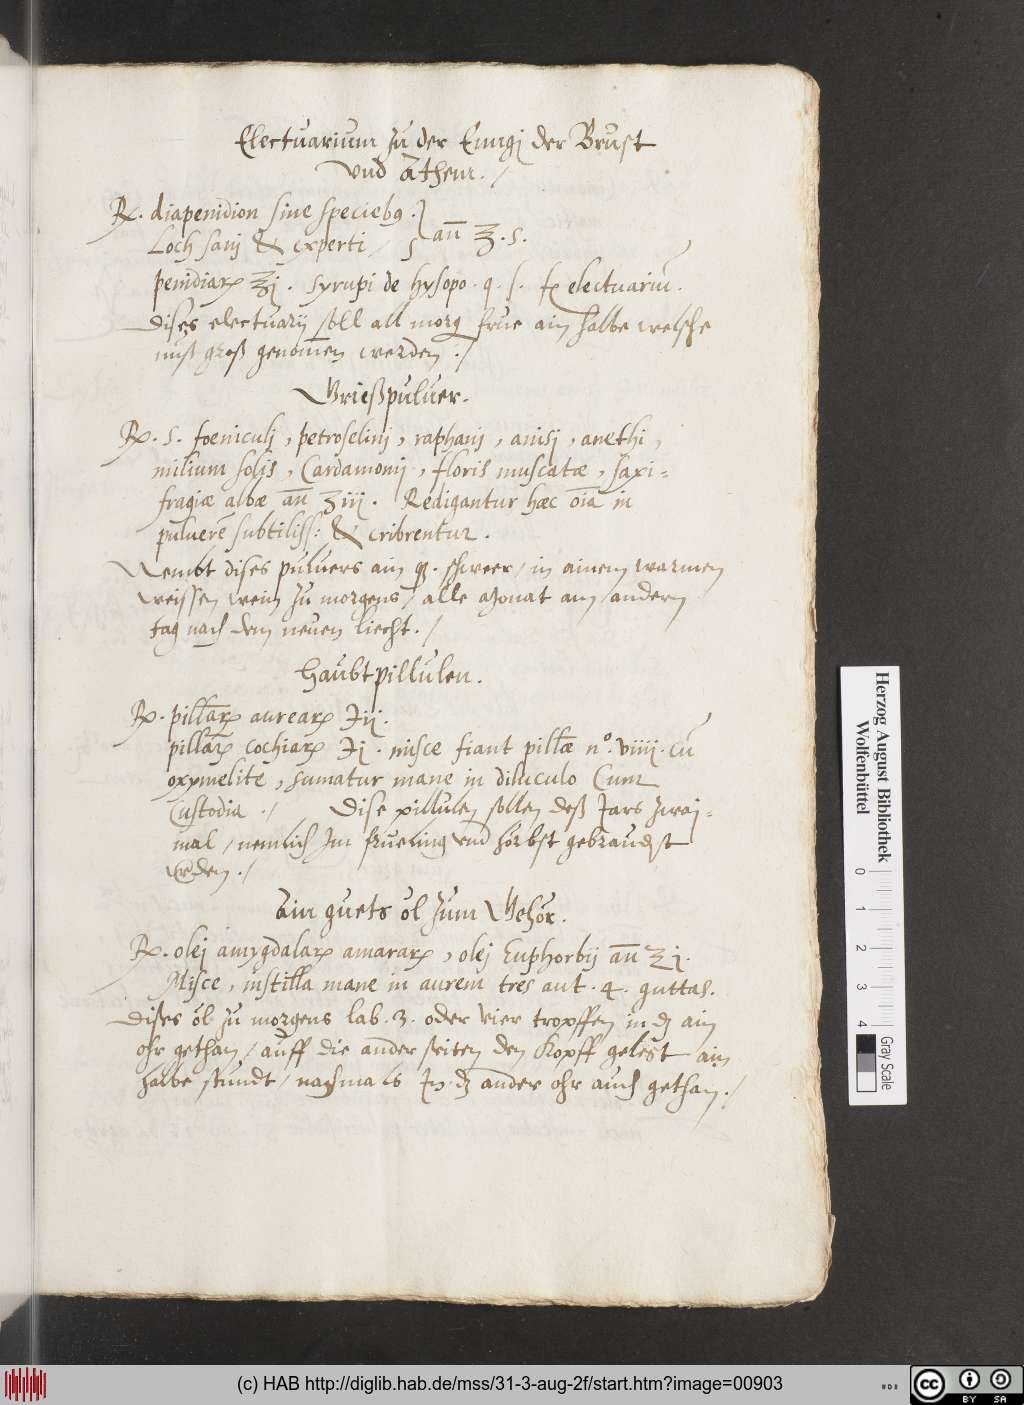 Electuarium zu der Enngj der Brust
vnd Athem ./
℞. diapenidion sine specieb9 .}
Loch sanj & experti / } an̄ ℥.s.
penidiarꝝ ℥j. syrupi de hysopo. q. s. f. electuariū.
dises electuarij soll all morg frue ain halbe welsche
nuß groß genom̄en werden ./
Grießpuluer.
℞. s. foeniculj, petroselinj, raphanj, anisj, anethi,
milium solis, Cardamomj, floris muscatæ, saxi=
fragiæ albæ an̄ ʒiij. Redigantur hæc oīa in
puluerē subtiliss: & cribrentur.
Nembt dises puluers ain schweer / in ainem warmen
weissen wein zu morgens / alle Monat am andern
tag nach dem neuen liecht ./
Haubtpillulen.
℞. pillarꝝ aurearꝝ ℈ij.
pillarꝝ cochiarꝝ ℈j. misce fiant pillæ nº. viiij. cū
oxymelite, sumatur mane in diluculo Cum
Custodia ./ Dise pillulen sollen deß Jars zwaj=
mal / nemlich Im frueling vnd hörbst gebraucht
werden ./
Ain guets öl zum Gehör.
℞. olej amygdalarꝝ amararꝝ, olej Euphorbij an̄ ʒj.
Misce, instilla mane in aurem tres aut .4. guttas.
Dises öl zu morgens lab. 3. oder vier tropffen in dz ain
ohr gethan / auff die ander seiten den Kopff gelest ain
halbe stundt / nachmals In dz ander ohr auch gethan ./
Herzog August Bibliothek
Wolfenbüttel
0 1 2 3 4
Gray Scale
(c) HAB http://diglib.hab.de/mss/31-3-aug-2f/start.htm?image=00903
WDB
cc BY SA